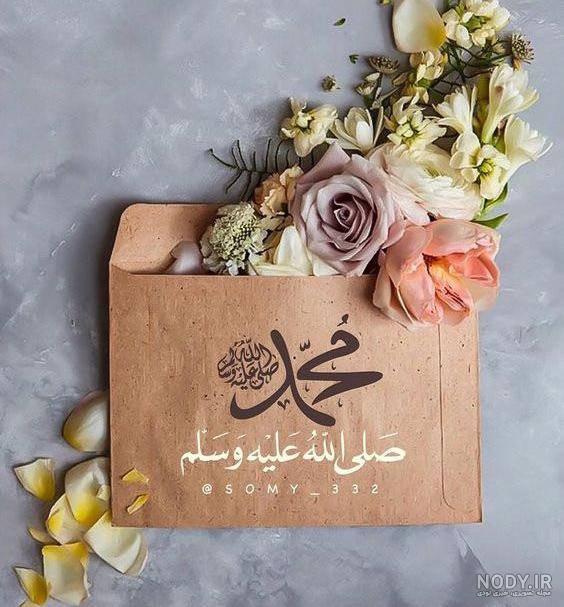 محمد
صلى الله عليه وسلم
صَلى اللهُ عَليْه وَسَلّم
@SOMY_332
NODY.IR
مجله تصویری، خبری نودی